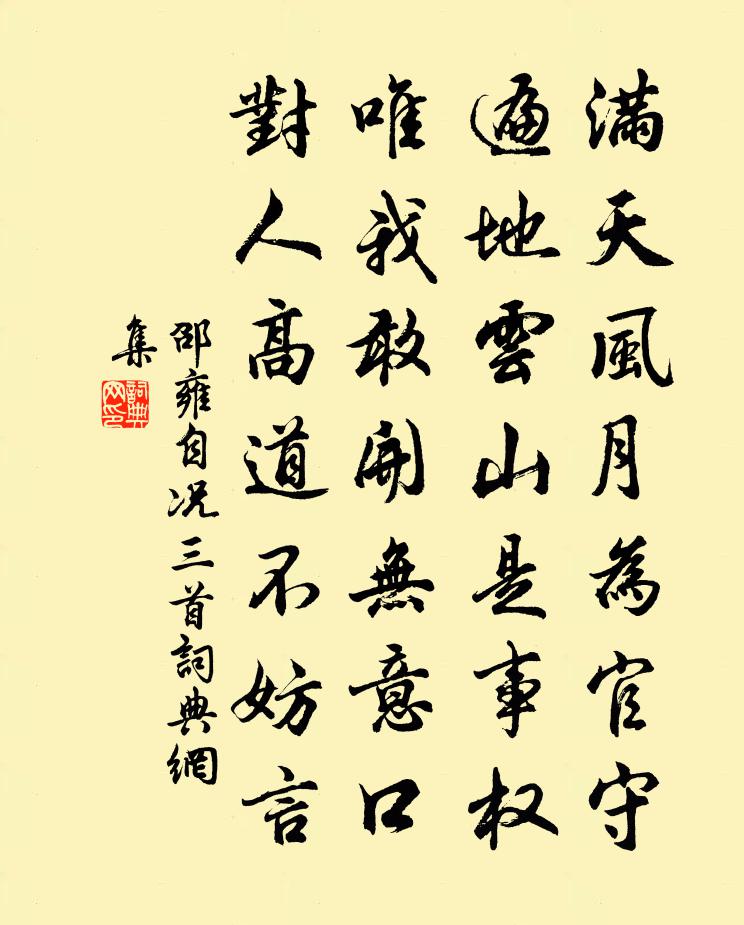 滿天風月為官守
遍地雲山是事权
唯我敢開無意口
對人高道不妨言
邵雍自况三首詞典網
集
詞典
网印